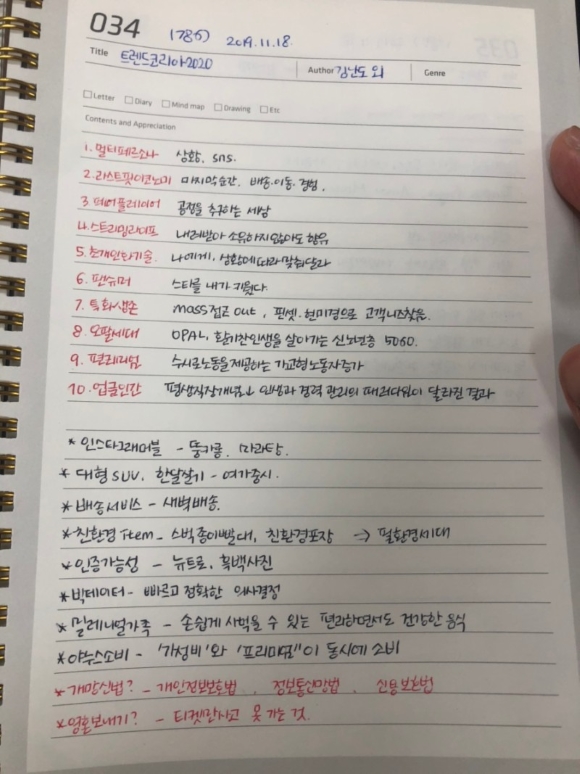 034 (786) 2019.11.18.
Title 트렌드코리아2020 Author 김난도 외 Genre
Letter Diary Mind map Drawing Etc
Contents and Appreciation
1. 멀티페르소나 상황, sns.
2. 라스트핏이코노미 마지막순간, 배송·이동·경험,
3 페어플레이어 공정을 추구하는 세상
4. 스트리밍라이프 내려받아 소유하지않아도 향유
5. 초개인화기술. 나에게, 상황에따라맞춰달라
6. 팬슈머 스타를 내가 키웠다.
7. 특화생존 mass접근 out, 핀셋·현미경으로 고객니즈찾음.
8. 오팔세대 OPAL, 활기찬인생을 살아가는 신노년층 5060.
9. 편리미엄 수시로노동을제공하는 가교형노동자증가
10. 업글인간 평생직장개념↓ 인생과 경력 관리의 패러다임이 달라진 결과
* 인스타그래머블 - 뚱카롱, 마라탕.
* 대형 SUV, 한달살기 - 여가중시.
* 배송서비스 - 새벽배송.
* 친환경 Item - 스벅종이빨대, 친환경포장 → 필환경세대
* 인증가능성 - 뉴트로, 흑백사진
* 빅데이터 - 빠르고 정확한 의사결정
* 밀레니얼가족 - 손쉽게 사먹을 수 있는 편리하면서도 건강한 음식
* 야누스소비 - '가성비'와 '프리미엄'이 동시에 소비
* 개망신법? - 개인정보보호법, 정보통신망법, 신용보호법
* 영혼보내기? - 티켓만사고 못 가는 것.